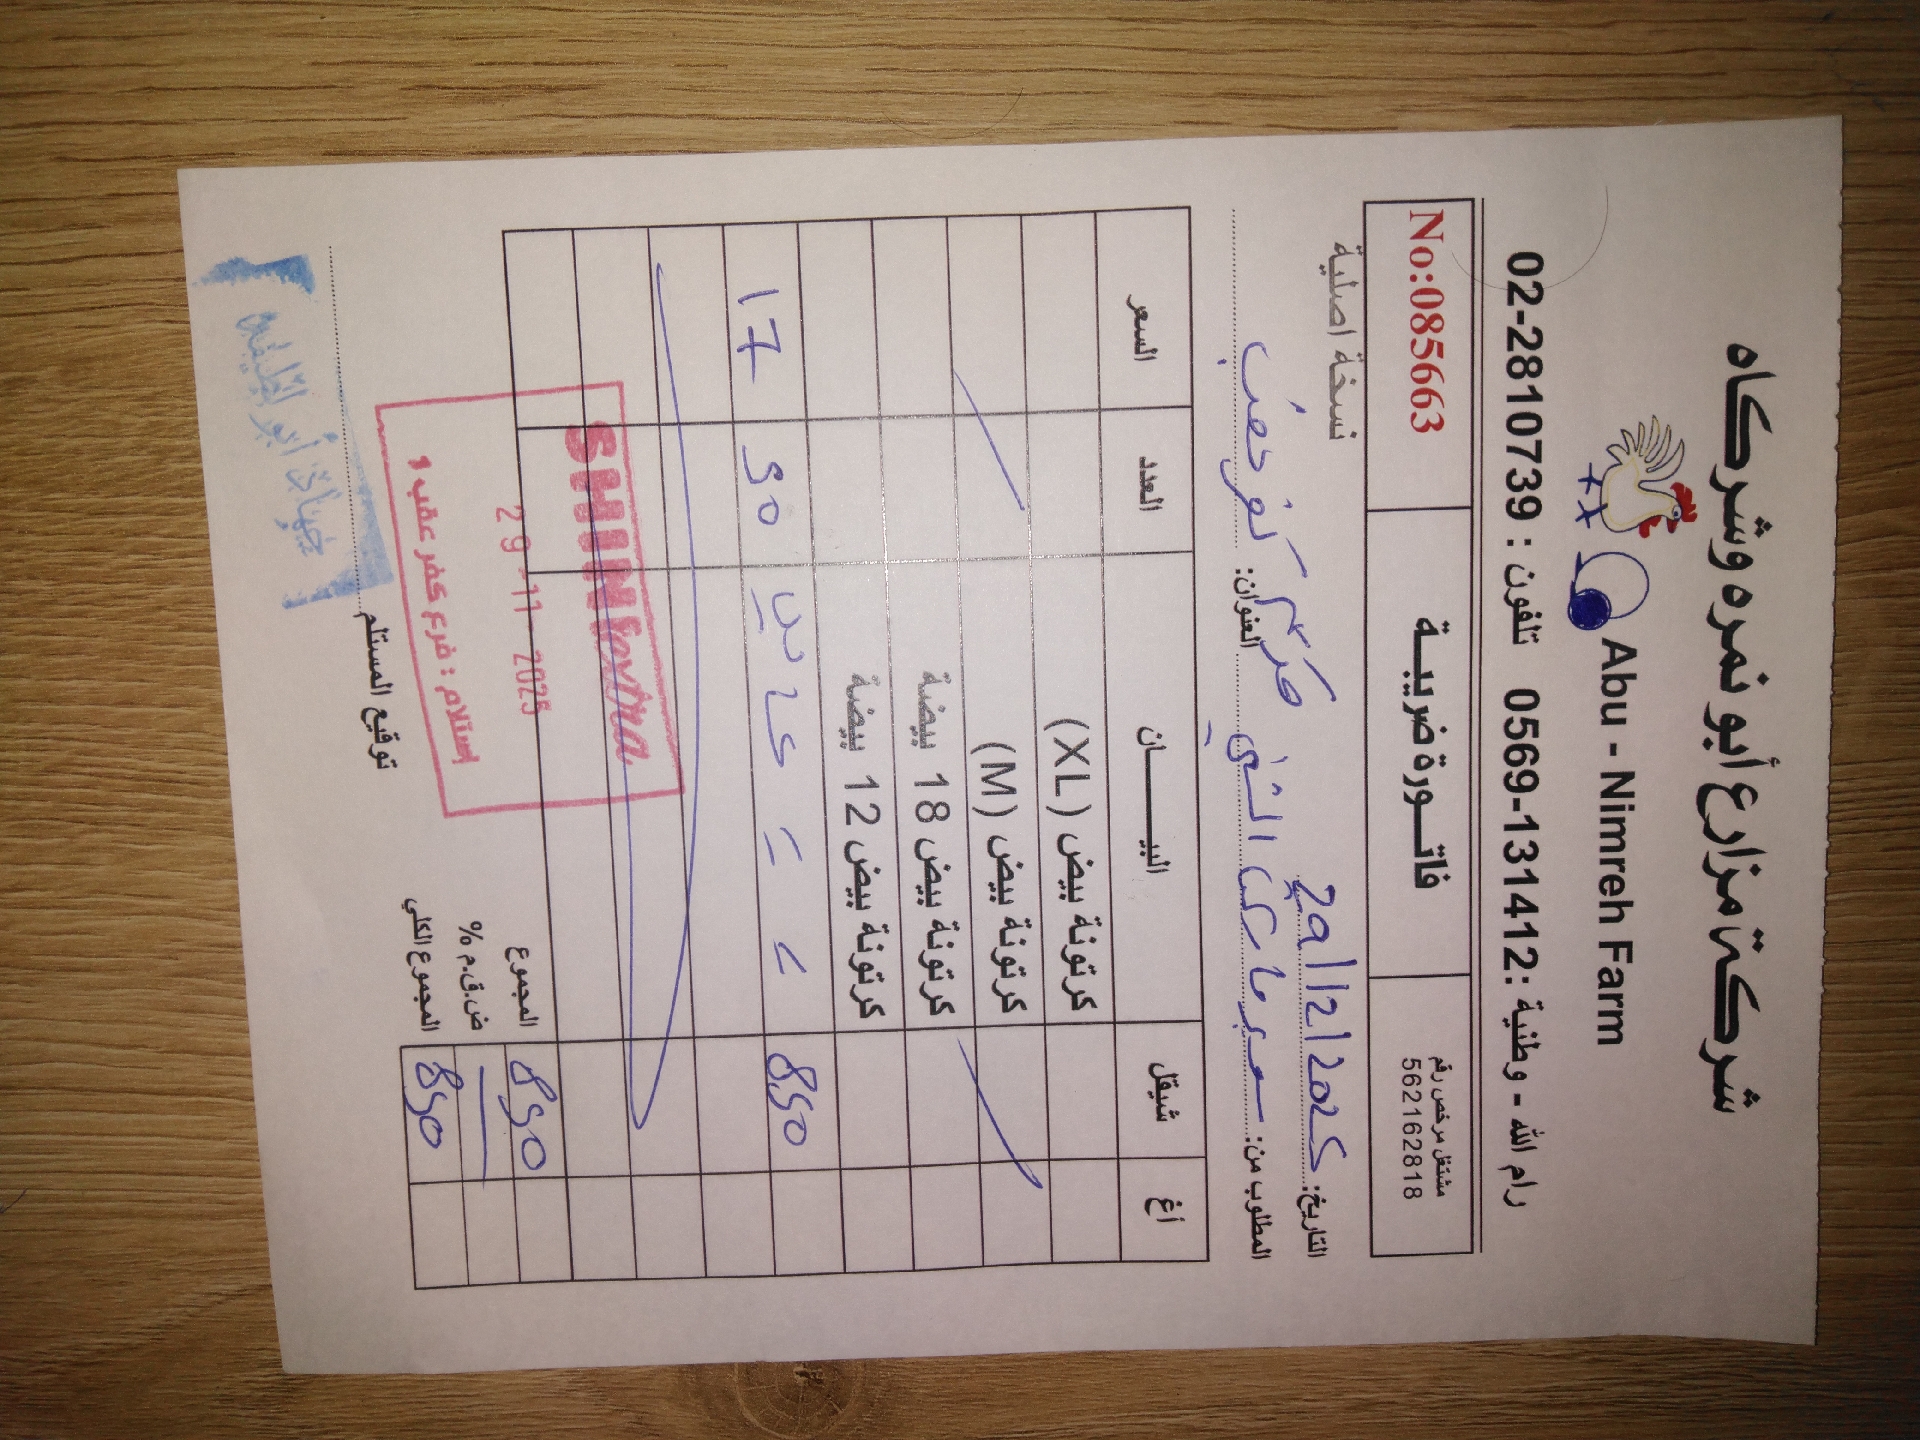 شركة مزارع أبو نمره وشركاه
Abu - Nimreh Farm
رام الله - وطنية : 0569-131412 تلفون : 02-2810739
مشتغل مرخص رقم
562162818
فاتـــورة ضريبــة
No:085663
التاريخ: 29/11/2025
نسخة اصلية
المطلوب من: سوبر ماركت الشني العنوان: كفر عقب
البيـــــان العدد السعر شيقل أغ
كرتونة بيض (XL)
كرتونة بيض (M)
كرتونة بيض 18 بيضة
كرتونة بيض 12 بيضة
= = 50 17 850
SHINI extra
29 -11- 2025
إستلام : فرع كفر عقب
المجموع 850
ض.ق.م %
المجموع الكلي 850
توقيع المستلم
جهاد أبو لطيفه